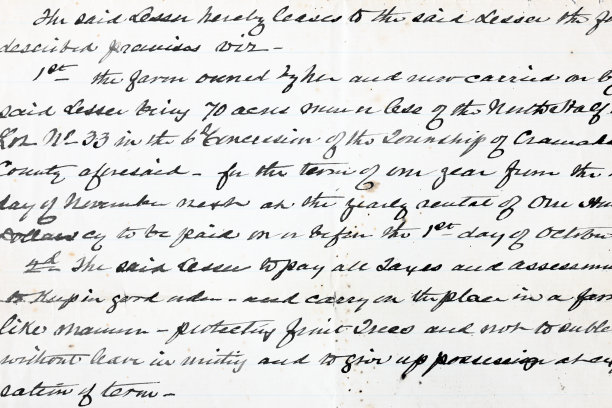 The said Lessor hereby leases to the said Lessee the
described premises viz -
1st the farm owned by her and now carried on by
said Lessee being 70 acres more or less of the North Half of
Lot No. 33 in the 6th Concession of the Township of Cramahe
County aforesaid - for the term of one year from the
day of November next at the yearly rental of One
Dollars cy to be paid on or before the 1st day of October
2d The said Lessee to pay all Taxes and assessm
to Keep in good order - and carry on the place in a far
like manner - protecting fruit Trees and not to suble
without leave in writing and to give up possession at
sation of term -